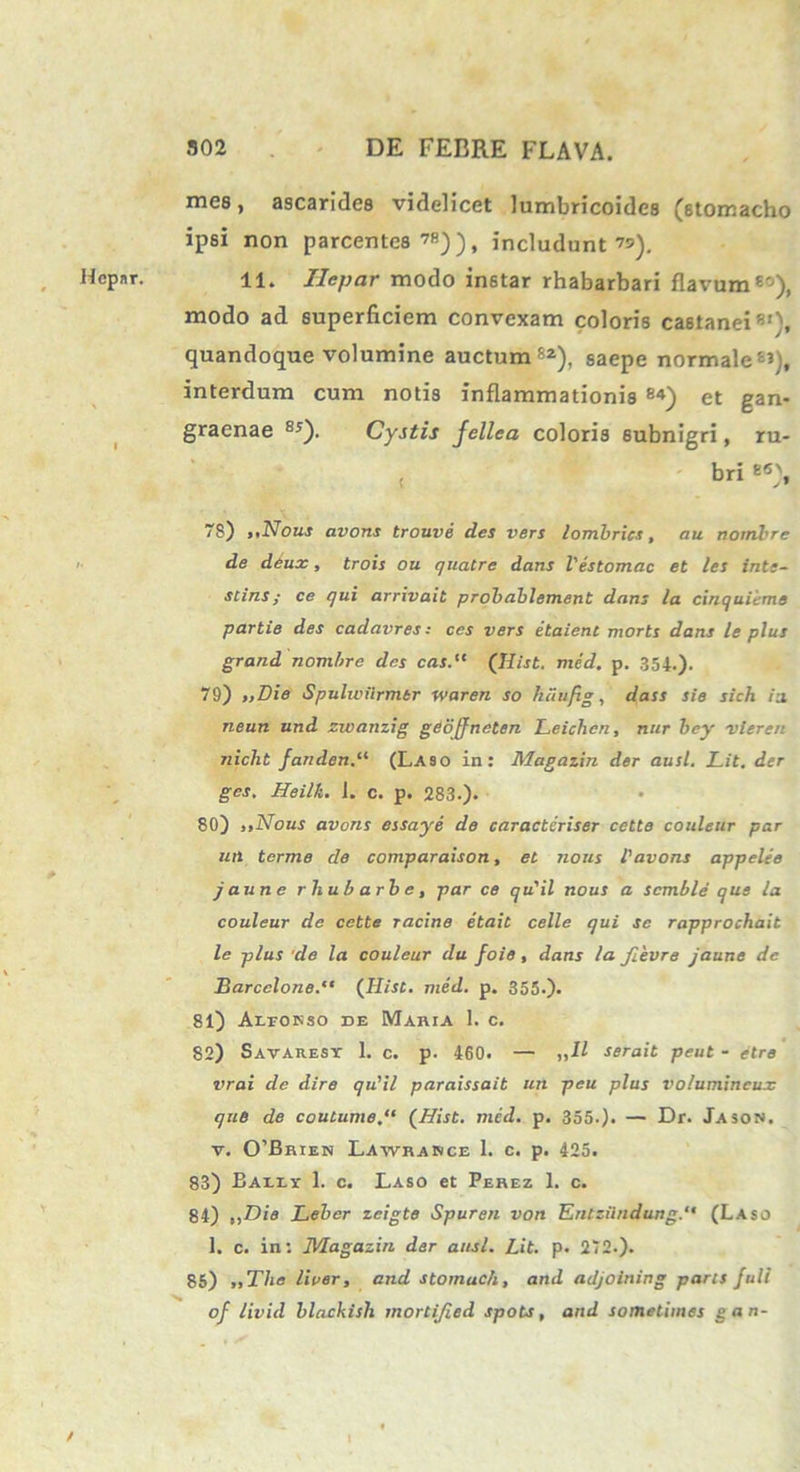 302 DE FEBRE FLAVA.
mes, ascarides videlicet lumbricoides (stomacho
ipsi non parcentes 78)), includunt 79).
Hepar. 11. Hepar modo instar rhabarbari flavum 80),
modo ad superficiem convexam coloris castanei 81),
quandoque volumine auctum 82), saepe normale 83),
interdum cum notis inflammationis 84) et gan-
graenae 85). Cystis fellea coloris subnigri, ru-
bri 86),
78) „Nous avons trouvé des vers lombrics, au nombre
de déux, trois ou quatre dans l'éstomac et les inte-
stins; ce qui arrivait probablement dans la cinquième
partie des cadavres: ces vers étaient morts dans le plus
grand nombre des cas.“ (Hist. méd. p. 354.).
79) „Die Spulwürmer waren so häufig, dass sie sich in
neun und zwanzig geöffneten Leichen, nur bey vieren
nicht fanden.“ (LASO in: Magazin der ausl. Lit. der
ges. Heilk. l. c. p. 283.).
80) „Nous avons essayé de caractériser cette couleur par
un terme de comparaison, et nous l'avons appelée
jaune rhubarbe, par ce qu'il nous a semblé que la
couleur de cette racine était celle qui se rapprochait
le plus de la couleur du foie, dans la fièvre jaune de
Barcelone.“ (Hist. méd. p. 355.).
81) ALFONSO DE MARIA l. c.
82) SAVARESY l. c. p. 460. — „Il serait peut-être
vrai de dire qu'il paraissait un peu plus volumineux
que de coutume.“ (Hist. méd. p. 355.). — Dr. JASON.
v. O'BRIEN LAWRANCE l. c. p. 425.
83) BALLY l. c. LASO et PEREZ l. c.
84) „Die Leber zeigte Spuren von Entzündung.“ (LASO
l. c. in: Magazin der ausl. Lit. p. 272.).
85) „The liver, and stomach, and adjoining parts full
of livid blackish mortified spots, and sometimes gan-